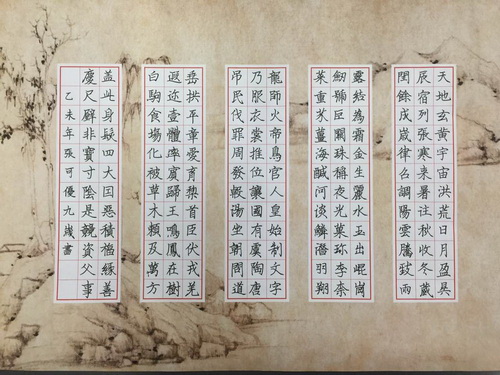 天地玄黃宇宙洪荒日月盈昃
辰宿列張寒來暑往秋收冬藏
閏餘成歲律呂調陽雲騰致雨
露結為霜金生麗水玉出崐崗
劒號巨闕珠稱夜光菓珎李柰
菜重芥薑海醎河淡鱗潛羽翔
龍師火帝鳥官人皇始制文字
乃服衣裳推位讓國有虞陶唐
吊民伐罪周發殷湯坐朝問道
垂拱平章愛育黎首臣伏戎羌
遐邇壹體率賓歸王鳴鳳在樹
白駒食場化被草木賴及萬方
盖此身髮四大囙惡積禍緣善
慶尺璧非寶寸陰是競資父事
乙未年張可優九歲書